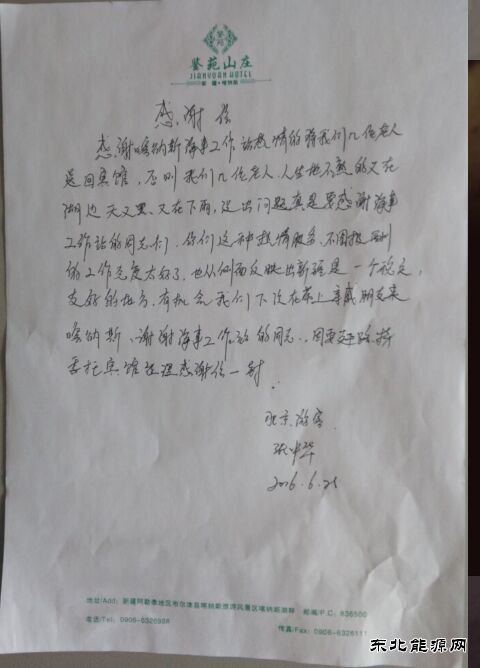 鉴苑山庄
JIANYUAN HOTEL
新疆·喀纳斯
感谢信
感谢喀纳斯海事工作站热情的将我们几位老人
送回宾馆，否则我们几位老人，人生地不熟的又在
湖边天又黑、又在下雨，没出问题真是要感谢海事
工作站的同志们，你们这种热情服务、不图报
的工作态度太好了，也从侧面反映出新疆是一个稳定，
友好的地方，有机会我们下次在带上亲戚朋友来
喀纳斯、谢谢海事工作站的同志、因要赶路特
委托宾馆送温感谢信一封
北京游客
张中华
2016.6.25
地址/Add：新疆阿勒泰地区布尔津县喀纳斯旅游风景区喀纳斯湖畔 邮编/P.C：836500
电话/Tel：0906-6326998
传真/Fax：0906-6326111
东北能源网